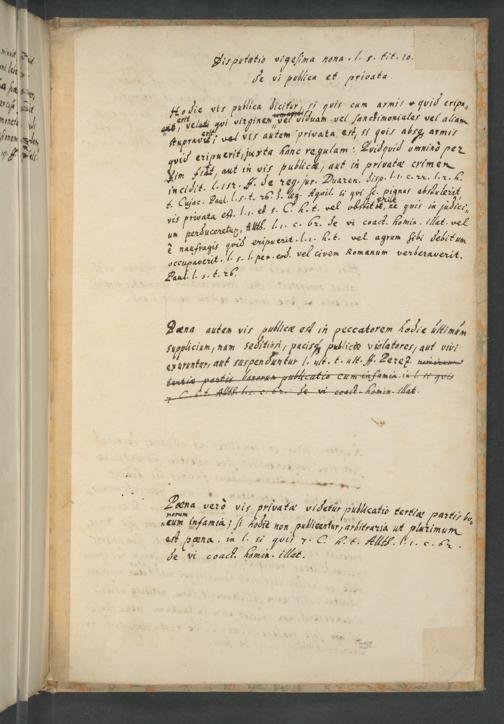 Disputatio vigesima nona. l. s. tit. 10.
de vi publica et privata.
Hodie vis publica dicitur, si quis cum armis quid eripu,
erit, veluti qui virginem vel viduam vel sanctimoniales vel aliam
stupraverit; vel vis autem privata est, si quis absq. armis
quid eripuerit, juxta hanc regulam: Quidquid omnino per
vim fiat, aut in vis publicæ, aut in privatæ crimen
incidit. l. 152. ff. de reg. jur. Duaren. l. 1. c. 22. l. 2. h.
t. Cujac. Paul. l. 5. t. 26. leg. Aquil. si qui pignus abstulerit
vis privata est. l. 1. et 5. C. h. t. vel obstiterit, ne quis in judici,,
um perduceretur, Matth. l. 1. c. 62. de vi coact. homin. illat. vel
è naufragis quid eripuerit. l. 1. h. t. vel agrum sibi debitum
occupaverit. l. 5. l. pen. eod. vel civem Romanum verberaverit.
Paul. l. 5. t. 26.
Pœna autem vis publicæ est in peccatorem hodie ultimum
supplicium, nam seditiosi, pacisq publicæ violatores, aut vivi
exuruntur, aut suspenduntur l. ult. t. ult. ff. Perez.
tertiæ partis bonorum publicatio cum infamia in l. si quis
7. C. h. t. Matth. l. 1. c. 62. de vi coact. homin. illat.
Pœna verò vis privatæ videtur publicatio tertiæ partis bo,
norum
cum infamia; si hodie non publicentur, arbitraria ut plurimum
est pœna. in l. si quis 7. C. h. t. Matth. l. 1. c. 62.
de vi coact. homin. illat.